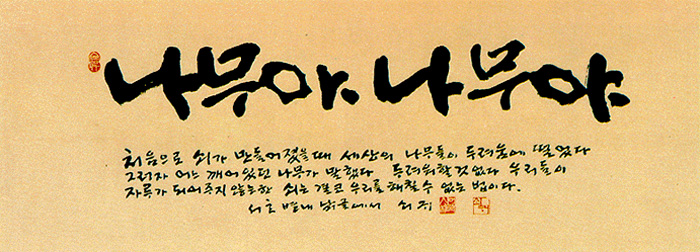 나무야. 나무야.
처음으로 쇠가 만들어졌을때 세상의 나무들이 두려움에 떨었다
그러자 어느 깨어있던 나무가 말했다 두려워할것없다 우리들이
자루가 되어주지 않는한 쇠는 결코 우리를 해칠수 없는 법이다.
서초